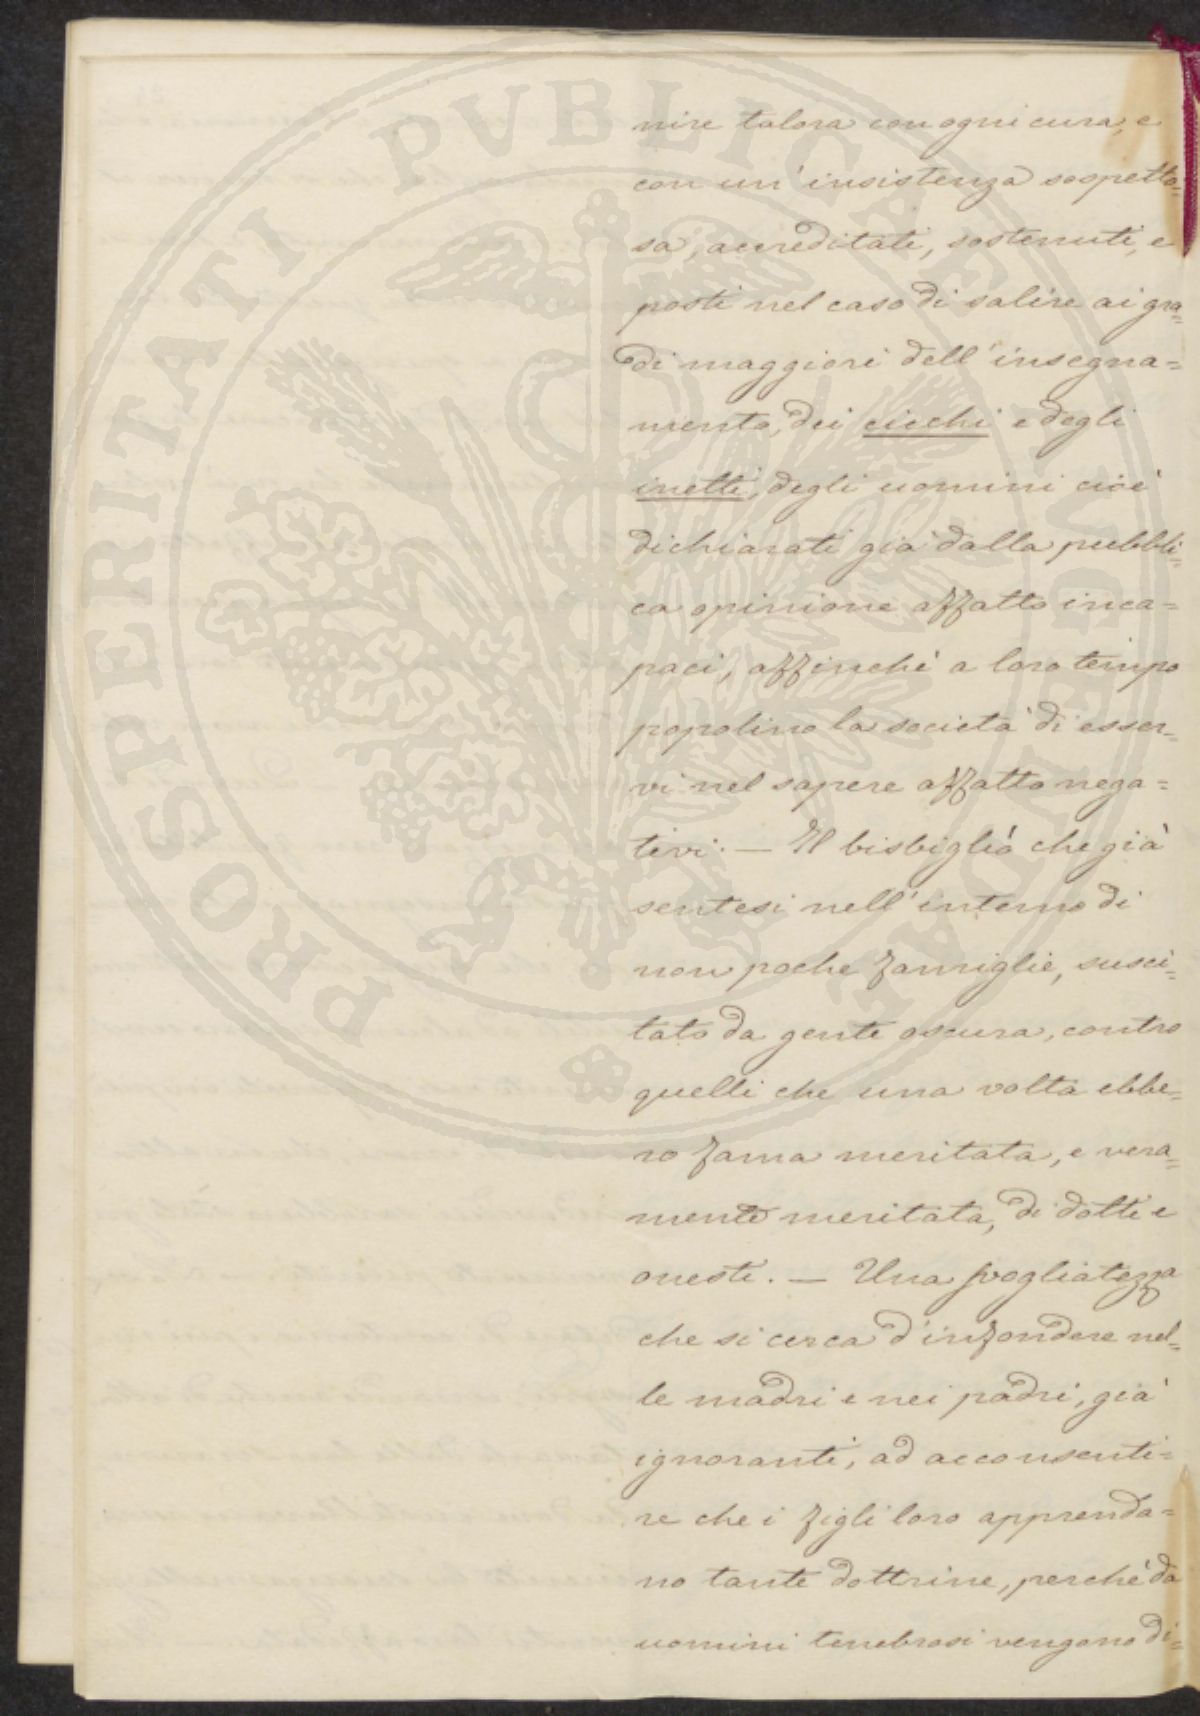 nire talora con ogni cura, e
con un' insistenza sospetto=
sa, accreditati, sostenuti, e
posti nel caso di salire ai gra=
di maggiori dell' insegna=
mento, dei ciechi e degli
inetti, degli uomini cioè
dichiarati già dalla pubbli=
ca opinione affatto inca=
paci, affinchè a loro tempo
popolino la società di esser=
vi nel sapere affatto nega=
tivi. — Il bisbiglio che già
sentesi nell' interno di
non poche famiglie, susci=
tato da gente oscura, contro
quelli che una volta ebbe=
ro fama meritata, e vera=
mente meritata, di dotti e
onesti. — Una svogliatezza
che si cerca d' infondere nel=
le madri e nei padri, già
ignoranti, ad acconsenti=
re che i figli loro apprenda=
no tante dottrine, perchè da
uomini tenebrosi vengono di=
PROSPERITATI PVBLICAE AVGENDAE